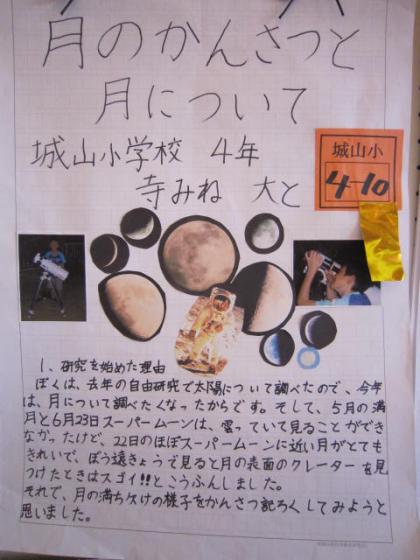 月のかんさつと
月について
城山小学校 4年
寺みね 大と
城山小
4-10
1、研究を始めた理由
ぼくは、去年の自由研究で太陽について調べたので、今年
は、月について調べたくなったからです。そして、5月の満
月と6月23日スーパームーンは、曇っていて見ることができ
なかったけど、22日のほぼスーパームーンに近い月がとても
きれいで、ぼう遠きょうで見ると月の表面のクレーターを見
つけたときはスゴイ!!とこうふんしました。
それで、月の満ち欠けの様子をかんさつ記ろくしてみようと
思いました。